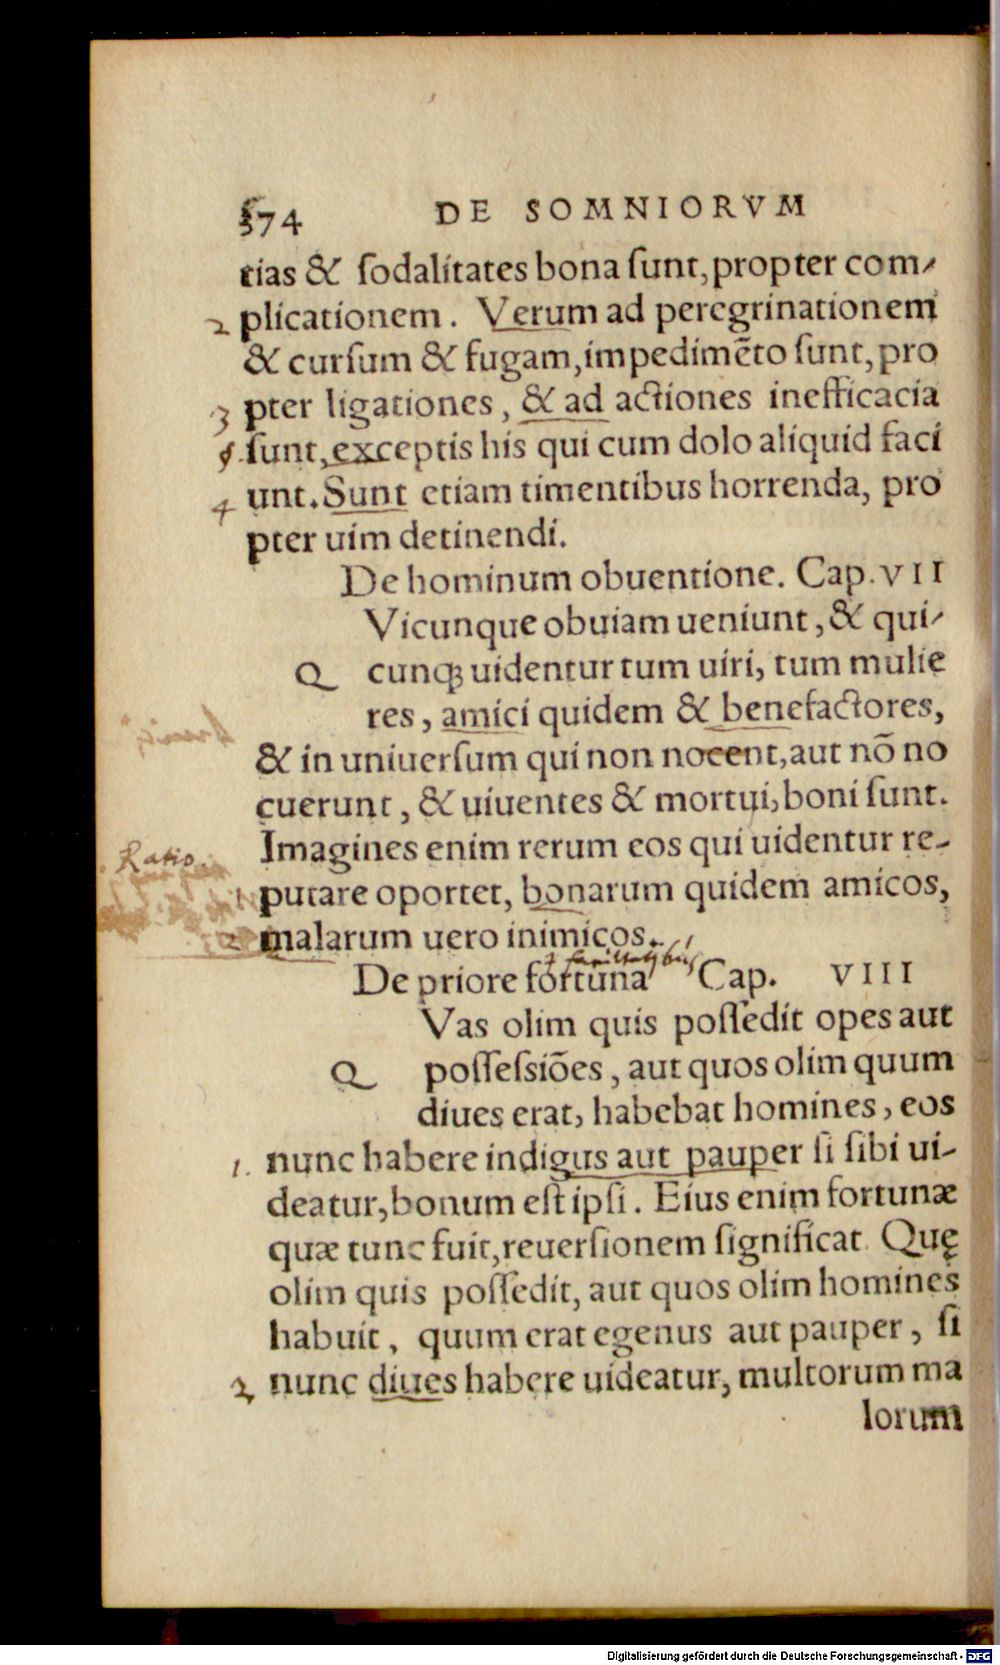 374 DE SOMNIORVM
tias & sodalitates bona sunt, propter com-
2 plicationem. Verum ad peregrinationem
& cursum & fugam, impedimēto sunt, pro
3 pter ligationes, & ad actiones inefficacia
sunt, exceptis his qui cum dolo aliquid faci
4 unt. Sunt etiam timentibus horrenda, pro
pter uim detinendi.
De hominum obuentione. Cap. VII
Vicunque obuiam ueniunt, & qui-
Q cunq; uidentur tum uiri, tum mulie
res, amici quidem & benefactores,
& in uniuersum qui non nocent, aut nō no
cuerunt, & uiuentes & mortui, boni sunt.
Imagines enim rerum eos qui uidentur re-
Ratio.
1 putare oportet, bonarum quidem amicos,
2 malarum uero inimicos.
De priore fortuna Cap. VIII
Vas olim quis possedit opes aut
Q possessiōes, aut quos olim quum
diues erat, habebat homines, eos
1. nunc habere indigus aut pauper si sibi ui-
deatur, bonum est ipsi. Eius enim fortunæ
quæ tunc fuit, reuersionem significat Quę
olim quis possedit, aut quos olim homines
habuit, quum erat egenus aut pauper, si
2 nunc diues habere uideatur, multorum ma
lorum
Digitalisierung gefördert durch die Deutsche Forschungsgemeinschaft - DFG